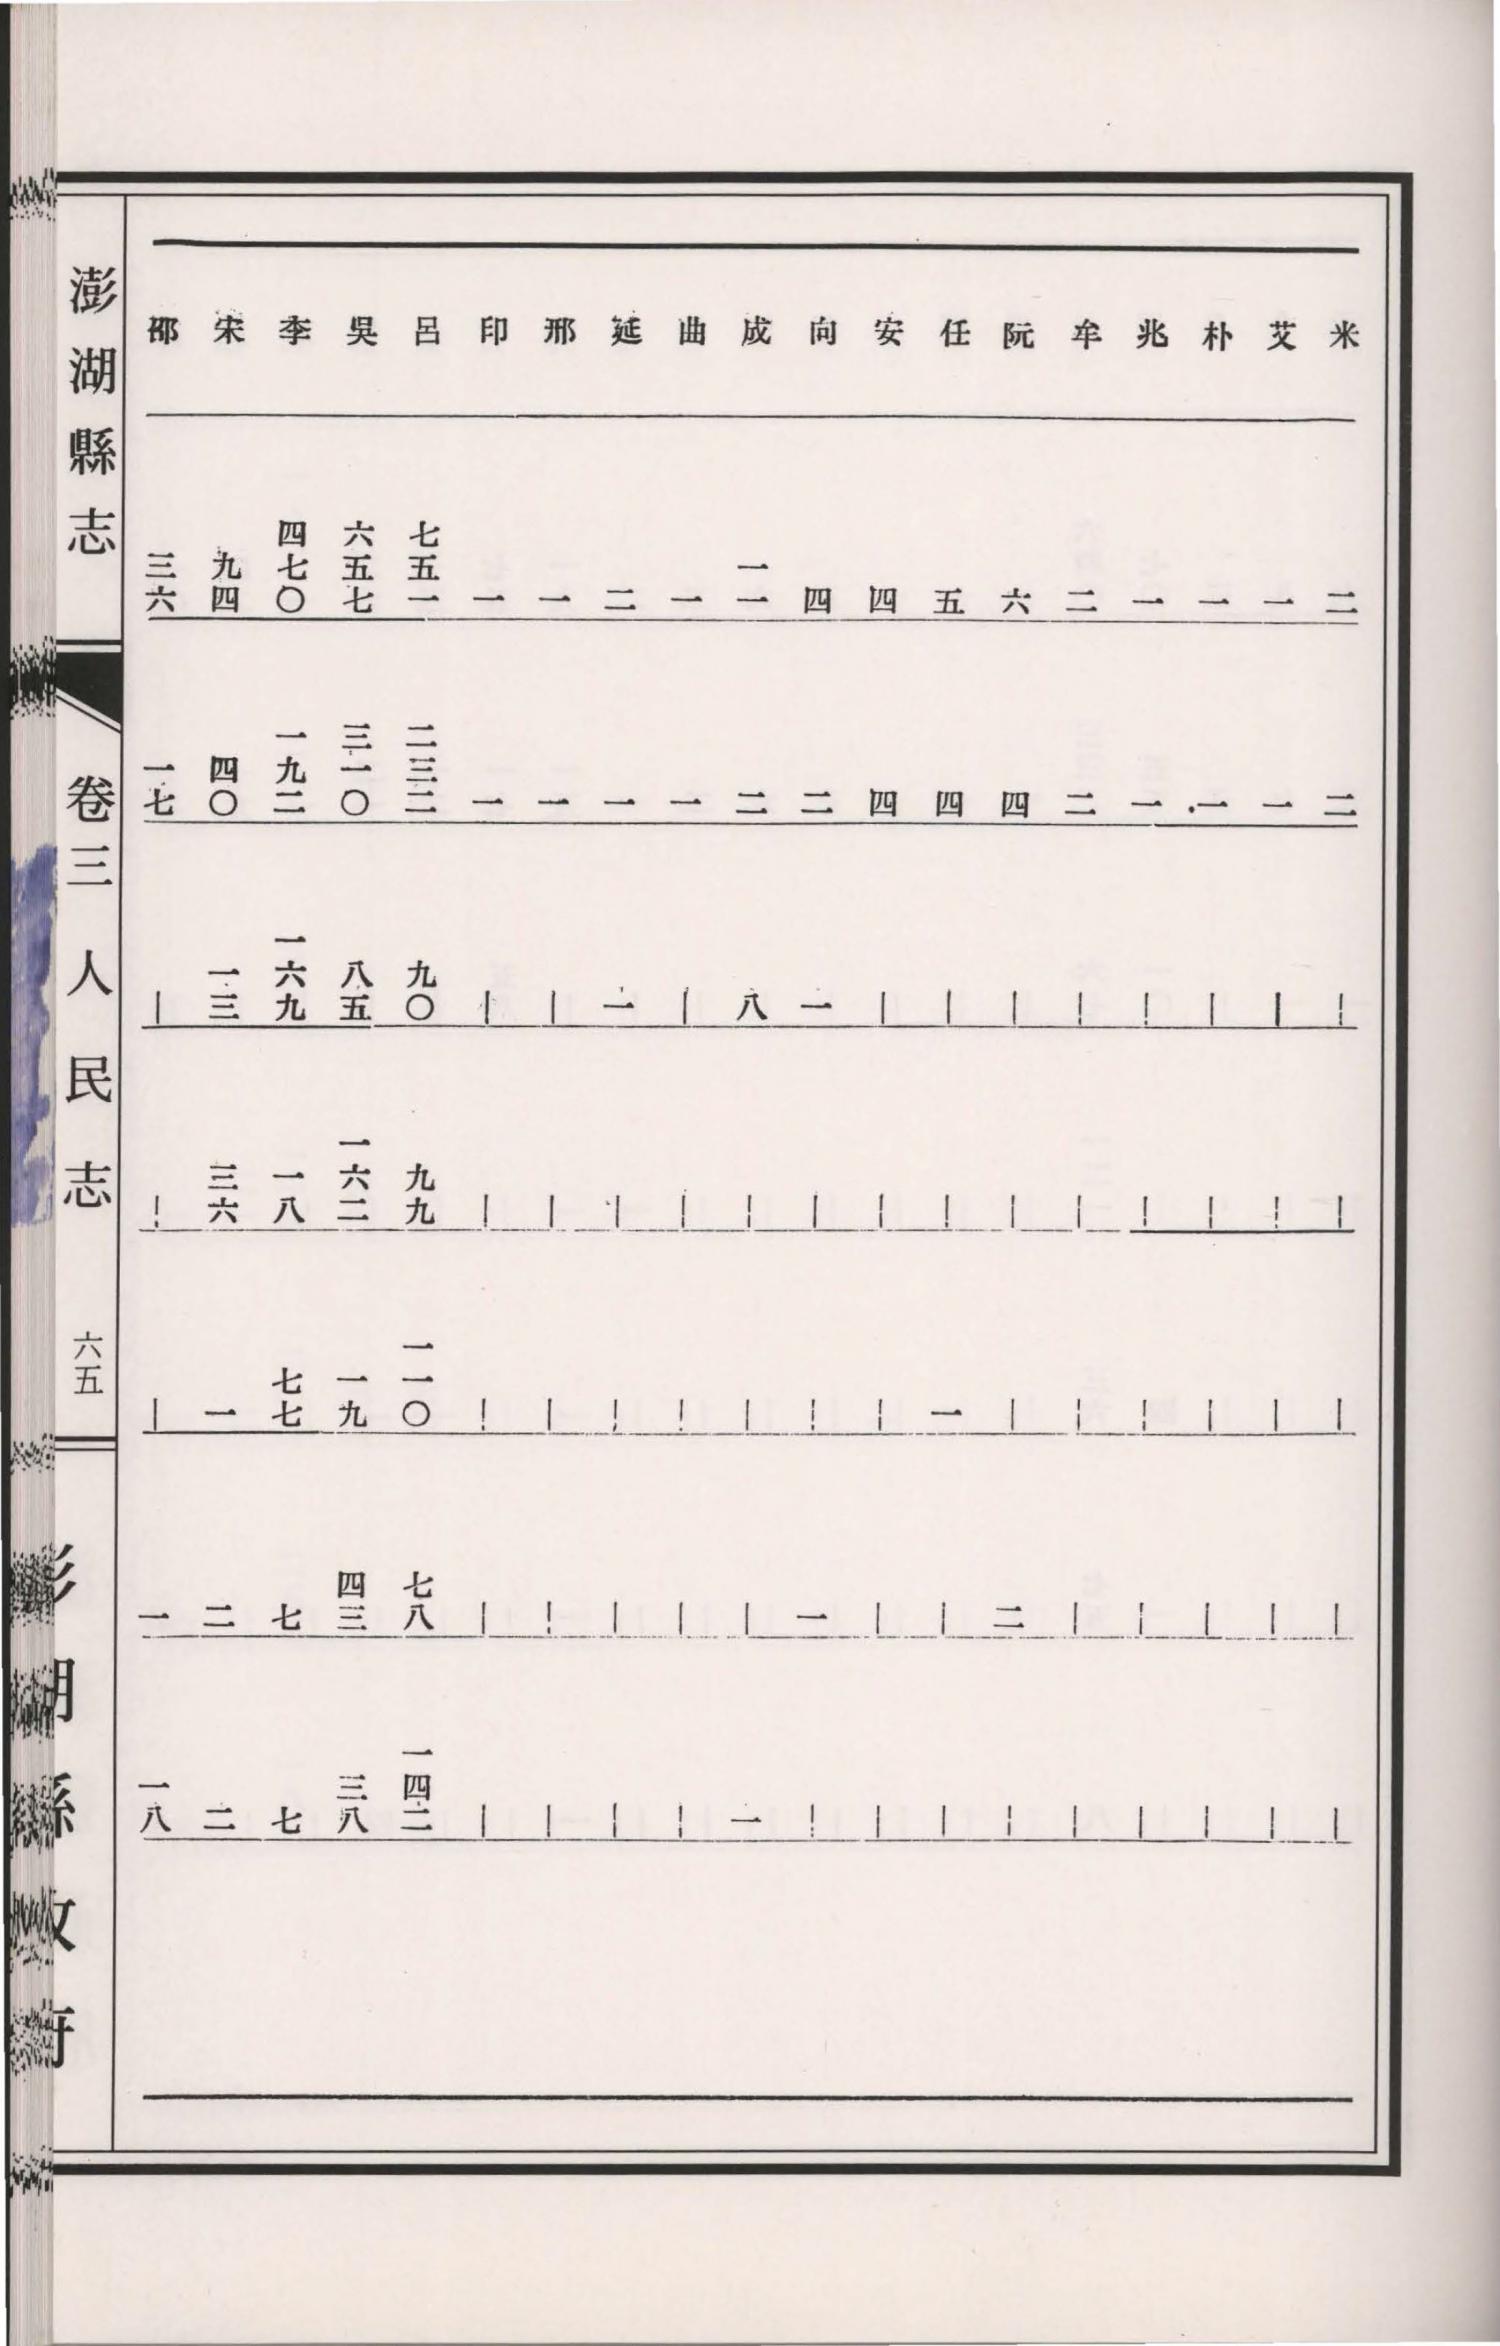 米 二 二 | | | | |
艾 一 一 | | | | |
朴 一 一 | | | | |
兆 一 一 | | | | |
牟 二 二 | | | | |
阮 六 四 | | | 二 |
任 五 四 | | 一 | |
安 四 四 | | | | |
向 四 二 一 | | 一 |
成 一一 二 八 | | | 一
曲 一 一 | | | | |
延 二 一 一 | | | |
邢 一 一 | | | | |
印 一 一 | | | | |
呂 七五一 二三二 九〇 九九 一一〇 七八 一四二
吳 六五七 三一〇 八五 一六二 一九 四三 三八
李 四七〇 一九二 一六九 一八 七七 七 七
宋 九四 四〇 一三 三六 一 二 二
邵 三六 一七 | | | 一 一八
澎湖縣志
卷三 人民志
六五